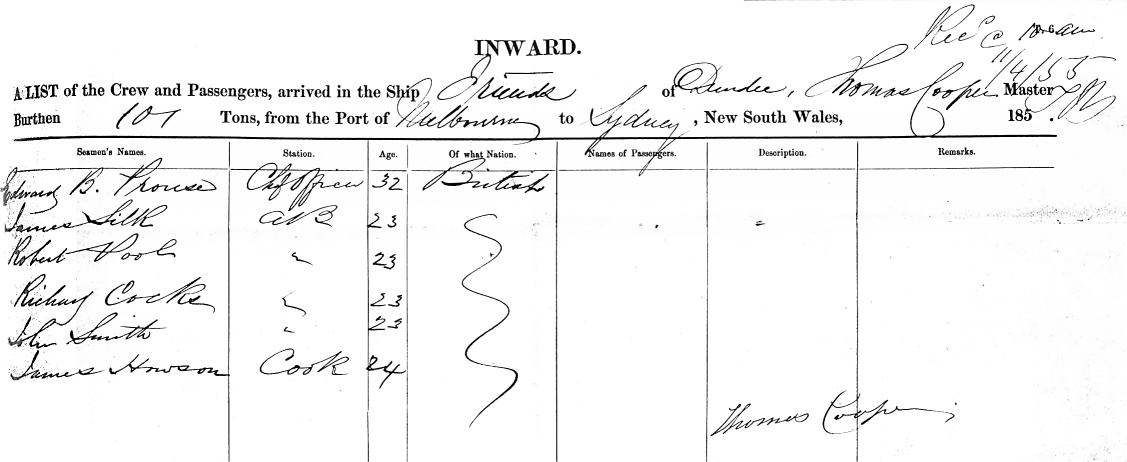 Rec'd @ 10 am
11/4/55
INWARD.
A LIST of the Crew and Passengers, arrived in the Ship Friends of Dundee, Thomas Cooper Master
Burthen 107 Tons, from the Port of Melbourne to Sydney, New South Wales, 185 .
Seamen's Names. Station. Age. Of what Nation. Names of Passengers. Description. Remarks.
Edward B. Prouse Chf Officer 32 British
James Silk AB 23
Robert Pool " 23
Richard Cocks " 23
John Smith " 23
James Howson Cook 24
Thomas Cooper